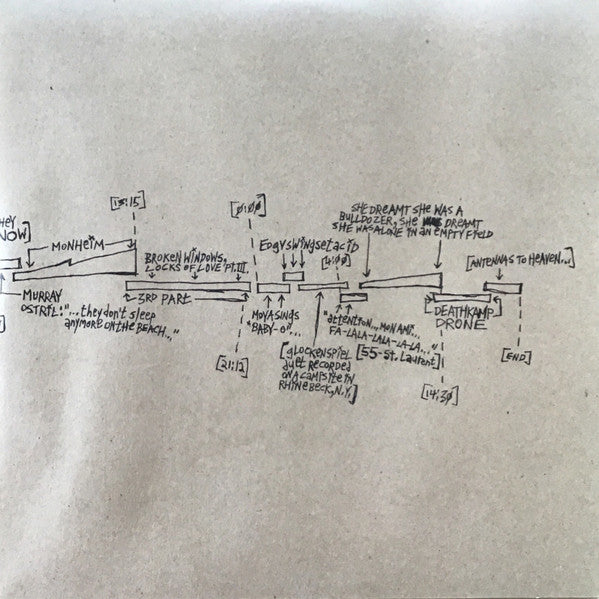 HEY
NOW]
MONHEIM
[13:15]
MURRAY
OSTRIL: "... they don't sleep
anymore on the beach..."
BROKEN WINDOWS,
LOCKS OF LOVE PT. III.
3RD PART
[0:00]
[21:12]
Edgyswingsetacid
MOYA SINGS
"BABY-O"...
[glockenspiel
duet recorded
on a campsite in
Rhinebeck, N.Y.]
[4:00]
"attention... mon ami...
FA-LALA-LALA-LA-LA..."
[55-St. Laurent]
SHE DREAMT SHE WAS A
BULLDOZER, SHE DREAMT
SHE WAS ALONE IN AN EMPTY FIELD
DEATHKAMP
DRONE
[14:30]
[ANTENNAS TO HEAVEN...]
[END]